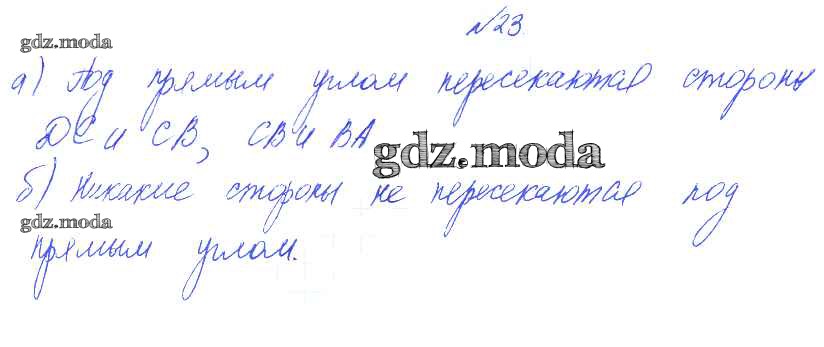 №23.
gdz.moda
а) Под прямым углом пересекаются стороны
DC и CB, CB и BA
gdz.moda
б) Никакие стороны не пересекаются под
gdz.moda
прямым углом.